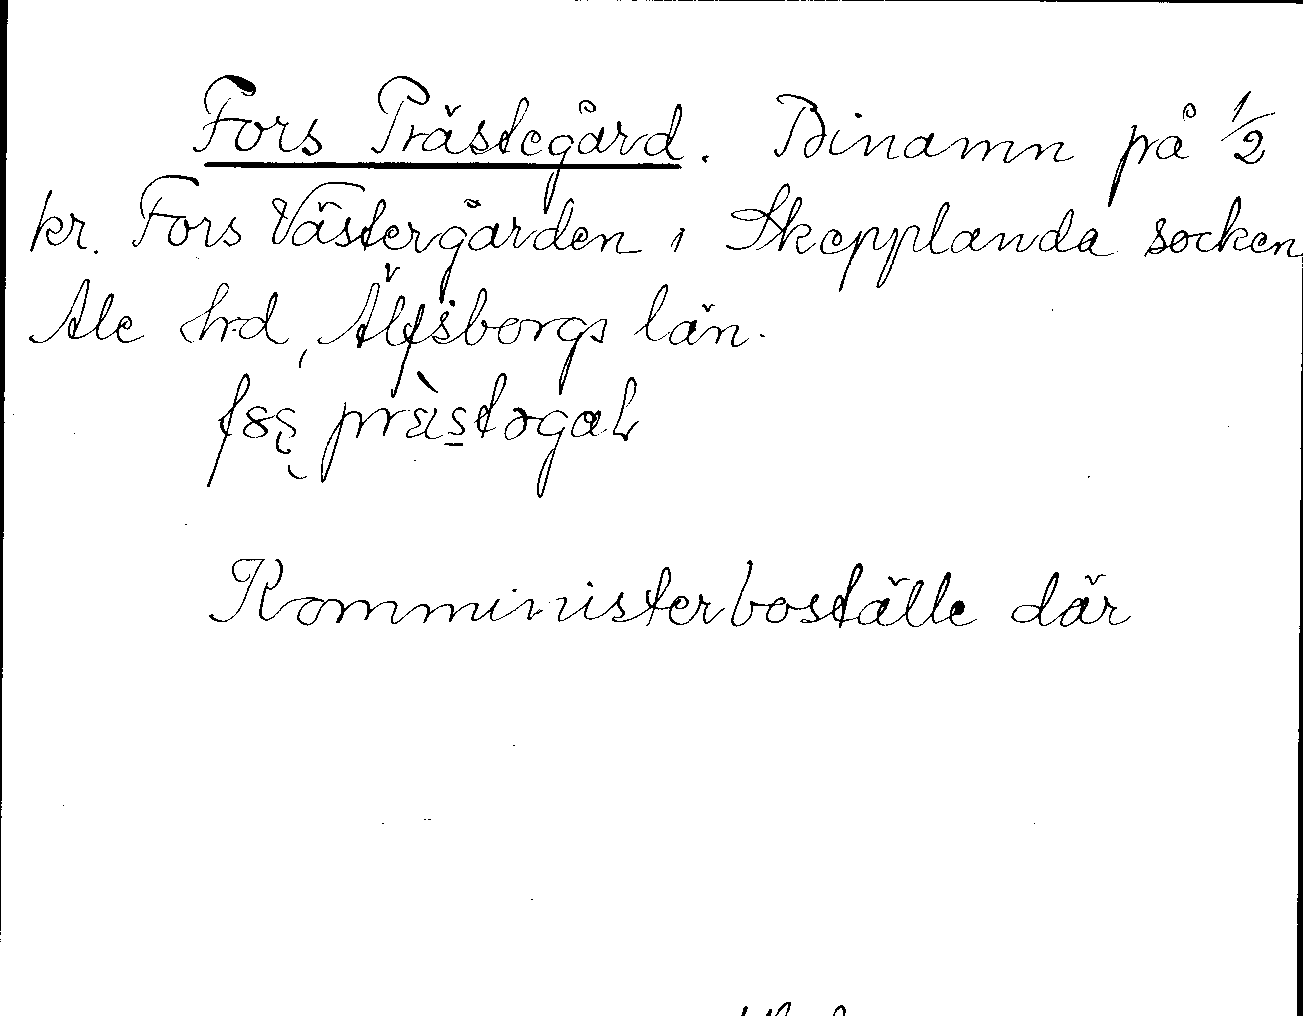 Fors Prästegård. Binamn på 1/2
kr. Fors Västergården i Skepplanda socken,
Ale hrd, Älfsborgs län.
Komministerboställe där